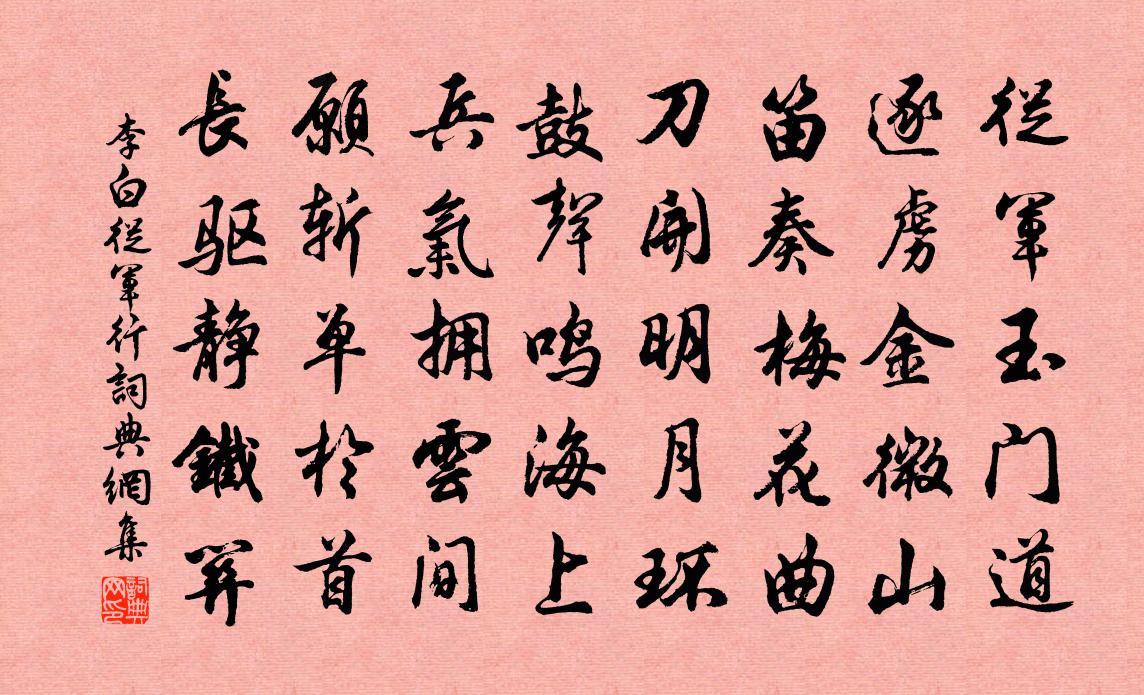 從軍玉门道
逐虜金微山
笛奏梅花曲
刀開明月环
鼓聲鸣海上
兵氣拥雲间
願斬单於首
長驱静鐵關
李白從軍行詞典網集
詞典网印